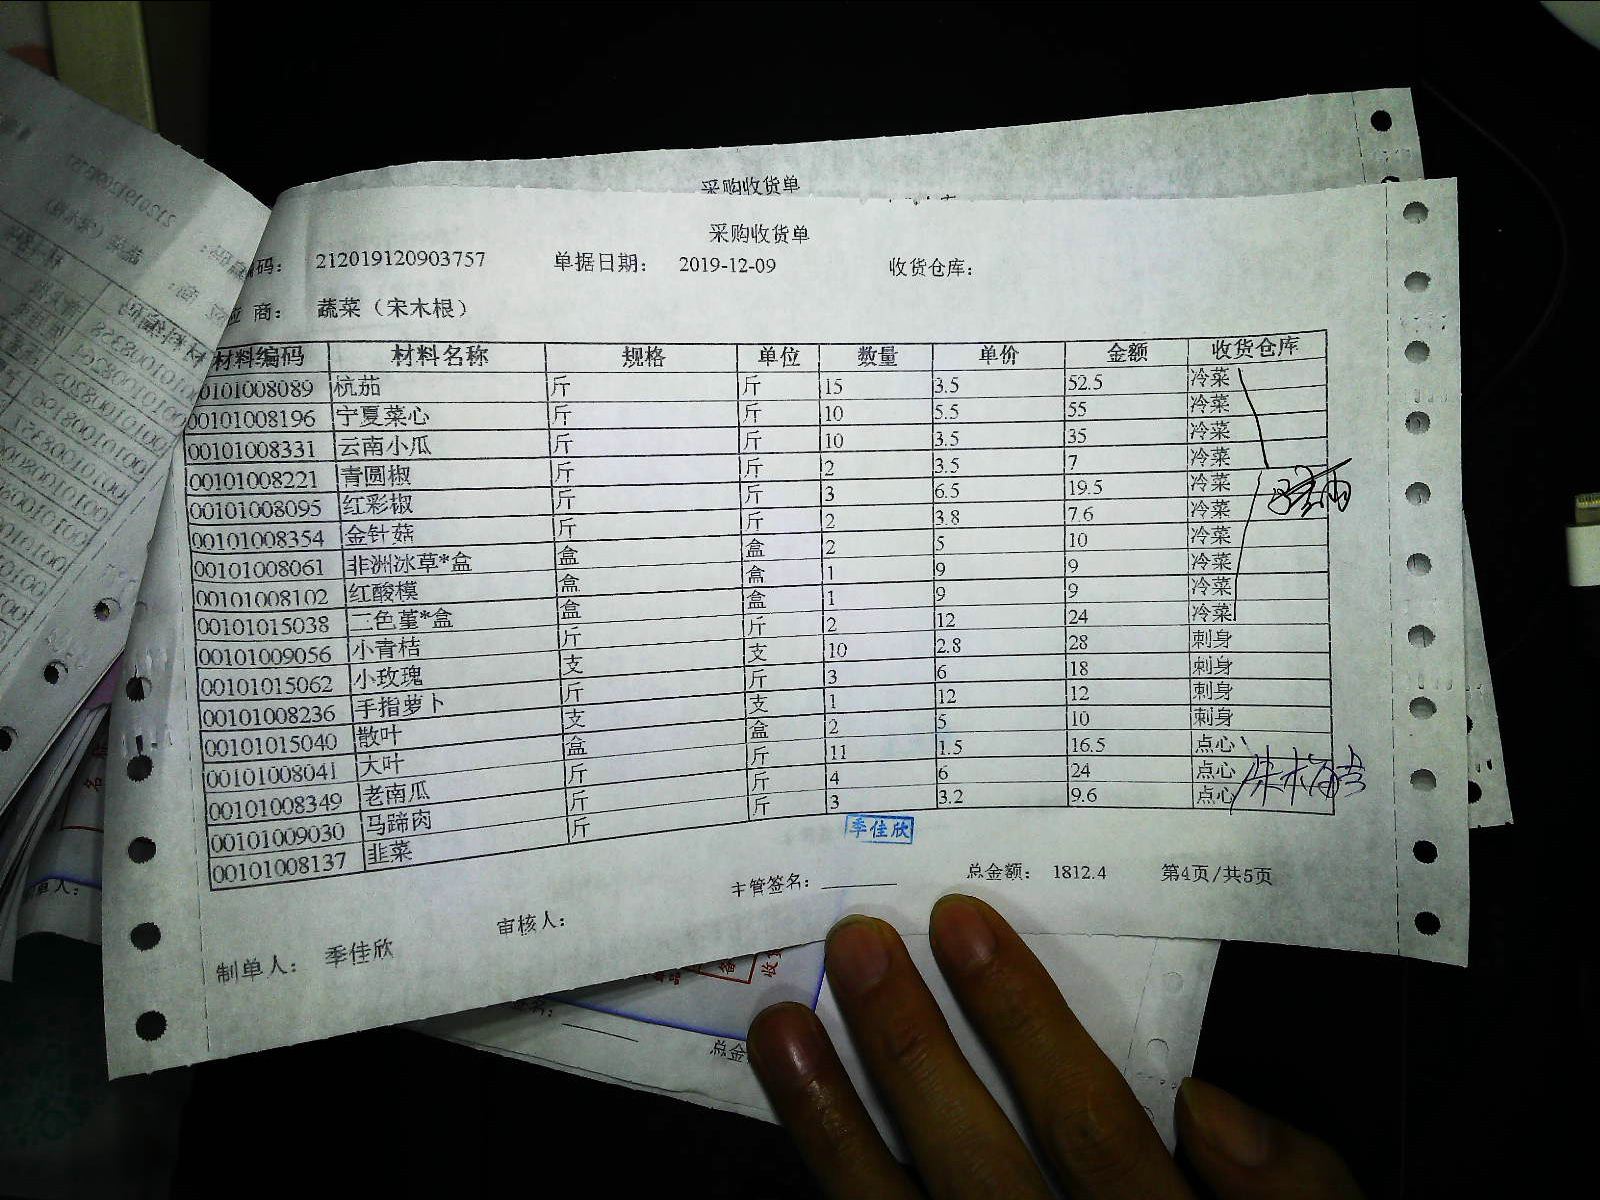 采购收货单
采购收货单
码： 212019120903757 单据日期： 2019-12-09 收货仓库：
应 商： 蔬菜（宋木根）
材料编码 材料名称 规格 单位 数量 单价 金额 收货仓库
00101008089 杭茄 斤 斤 15 3.5 52.5 冷菜
00101008196 宁夏菜心 斤 斤 10 5.5 55 冷菜
00101008331 云南小瓜 斤 斤 10 3.5 35 冷菜
00101008221 青圆椒 斤 斤 2 3.5 7 冷菜
00101008095 红彩椒 斤 斤 3 6.5 19.5 冷菜
00101008354 金针菇 斤 斤 2 3.8 7.6 冷菜
00101008061 非洲冰草*盒 盒 盒 2 5 10 冷菜
00101008102 红酸模 盒 盒 1 9 9 冷菜
00101015038 二色堇*盒 盒 盒 1 9 9 冷菜
00101009056 小青桔 斤 斤 2 12 24 冷菜
00101015062 小玫瑰 支 支 10 2.8 28 刺身
00101008236 手指萝卜 斤 斤 3 6 18 刺身
00101015040 散叶 支 支 1 12 12 刺身
00101008041 大叶 盒 盒 2 5 10 刺身
00101008349 老南瓜 斤 斤 11 1.5 16.5 点心
00101009030 马蹄肉 斤 斤 4 6 24 点心
00101008137 韭菜 斤 斤 3 3.2 9.6 点心
季佳欣
制单人： 季佳欣 审核人： 主管签名： 总金额： 1812.4 第4页/共5页
总金